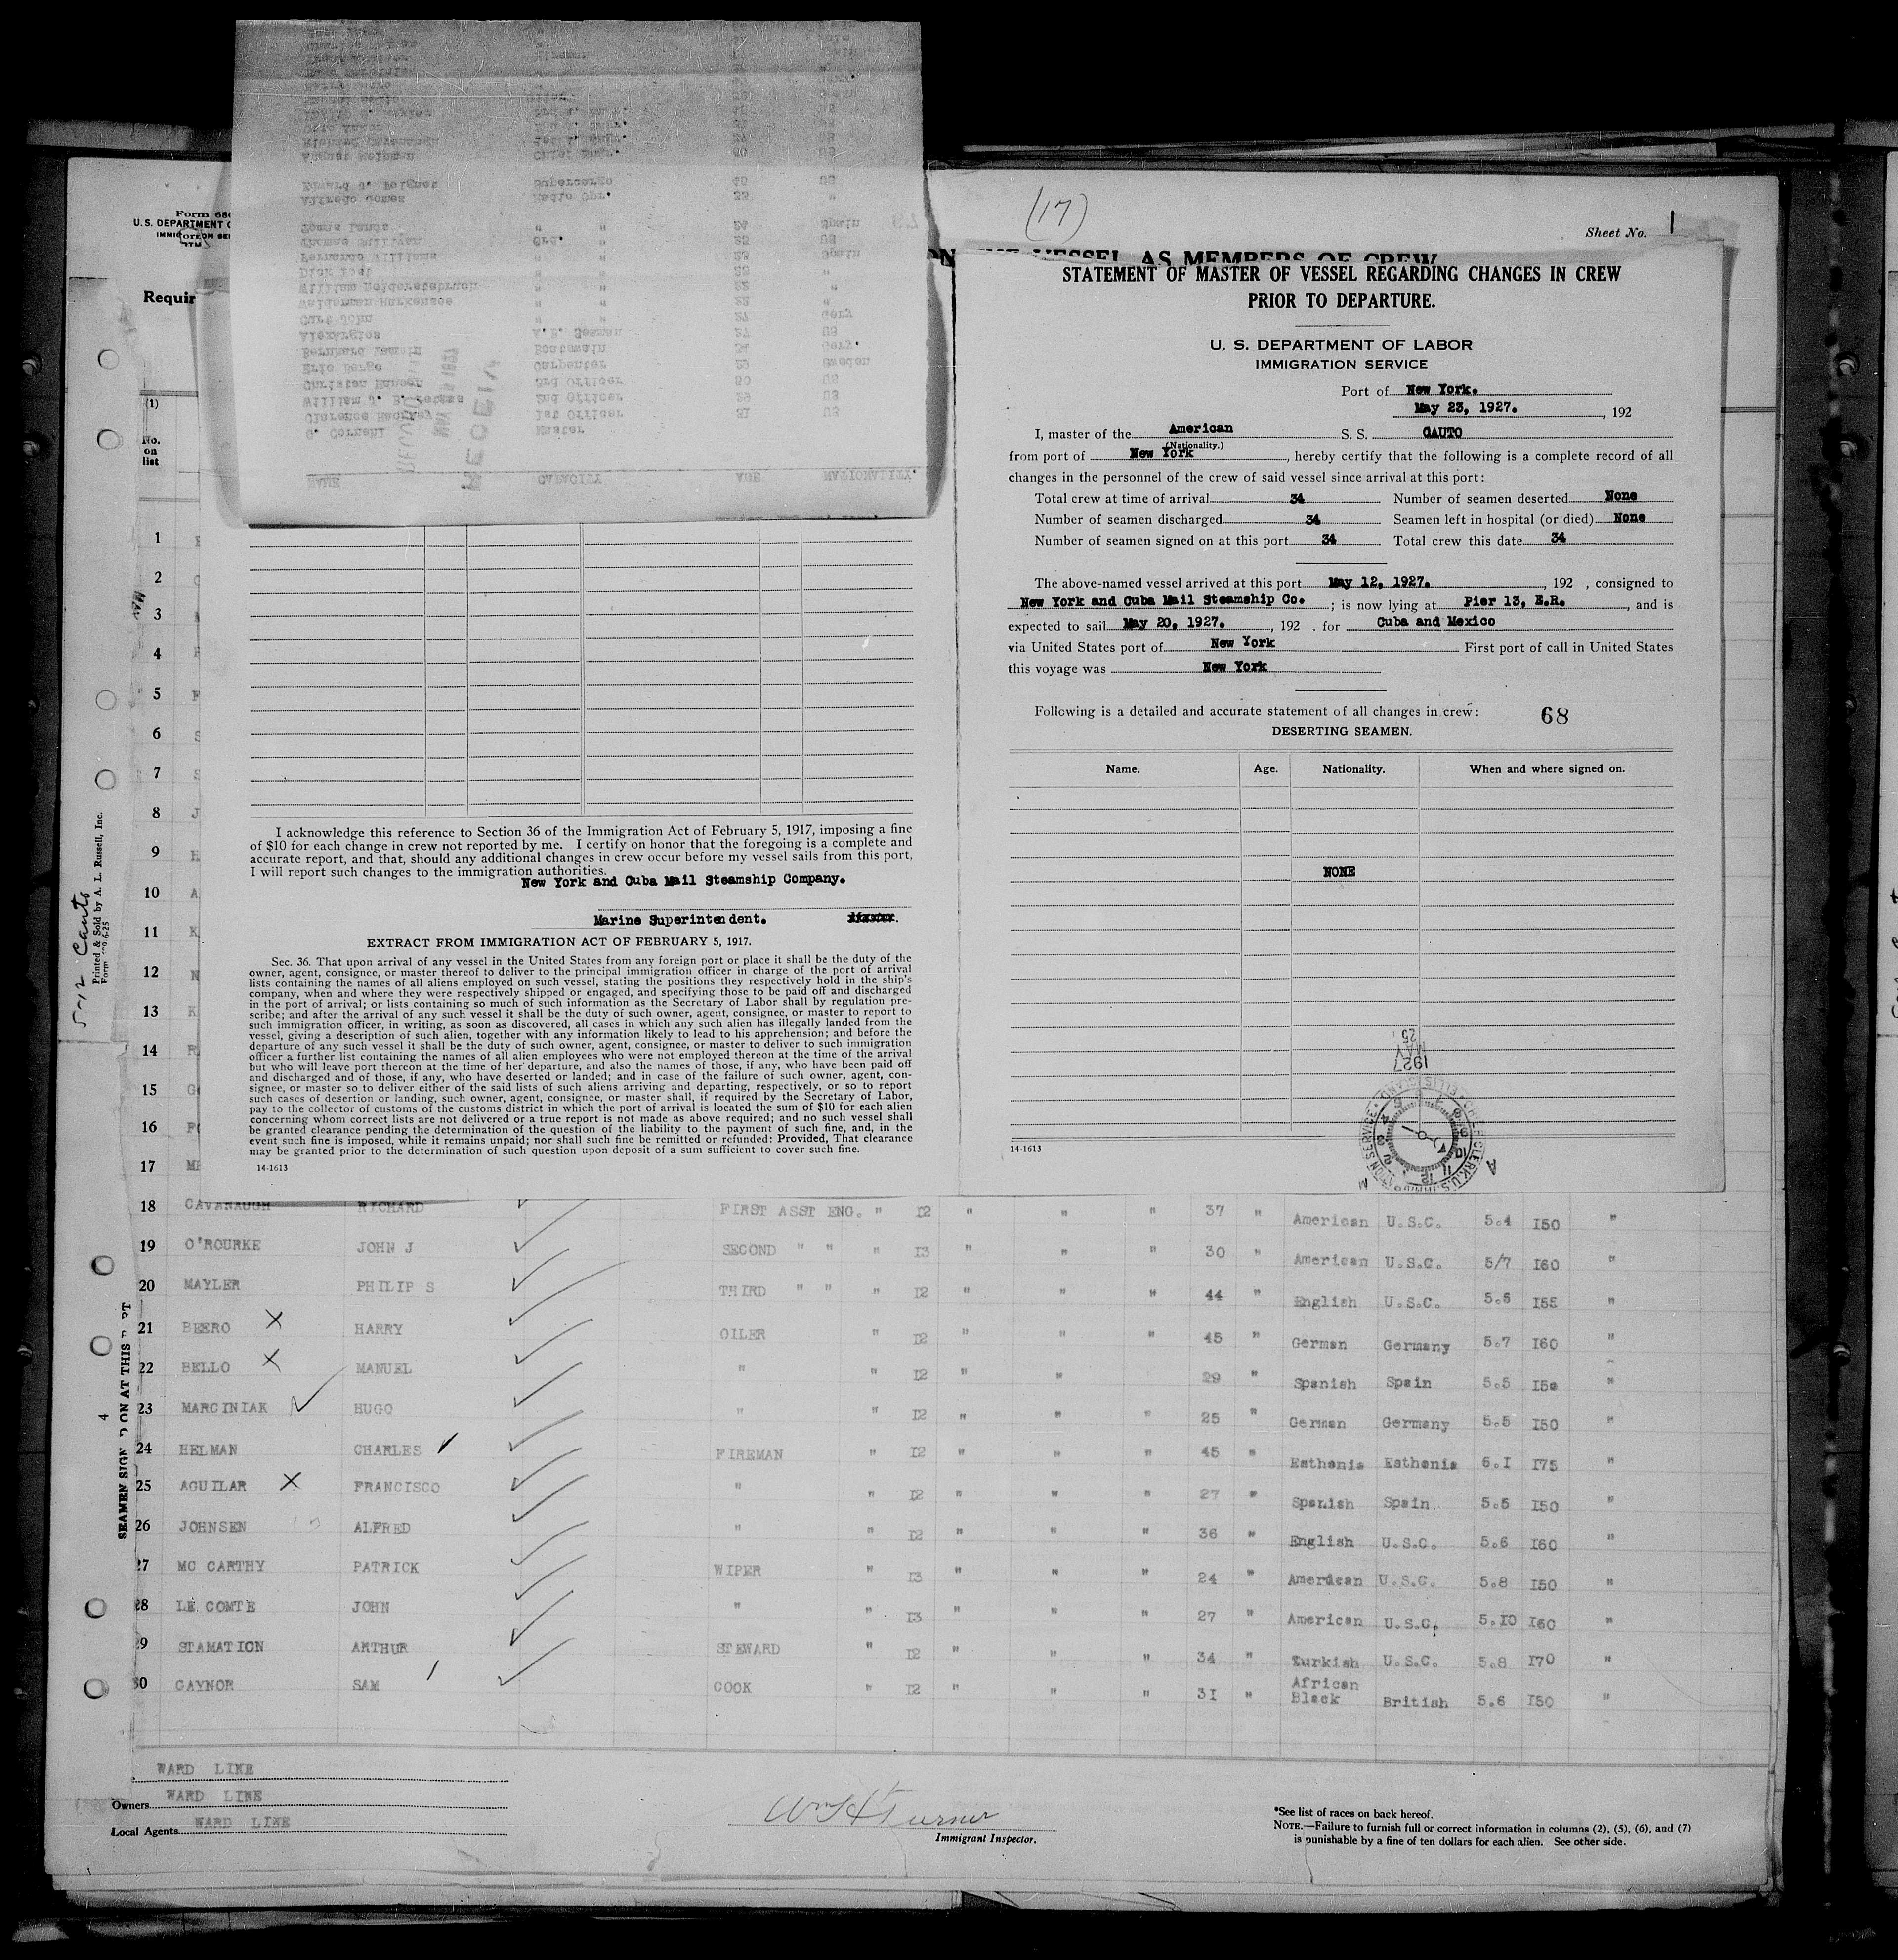 (17)
Sheet No. 1
Form 680
U.S. DEPARTMENT
Requir
(1)
No. on list
NAME CAPACITY AGE NATIONALITY.
G. Cornehl Master
Clarence Hackney 1st Officer 31 US
2nd Officer 29 US
Christen Hansen 3rd Officer 50 US
Eric Berge Carpenter 29 Sweden
Boatswain Gery.
A.B. Seaman 27 US
Curt John " " 27 Gery
" " 22 "
" " 22 "
Dick Post " " "
Fernando Williams " " Spain
Thomas Sullivan Ord. " 25 US
" " 24 Spain
Alfredo Gomez Radio Opr. "
Supercargo US
Chief Engr. 40 US
Richard Cavanaugh US
STATEMENT OF MASTER OF VESSEL REGARDING CHANGES IN CREW
PRIOR TO DEPARTURE.
U. S. DEPARTMENT OF LABOR
IMMIGRATION SERVICE
Port of New York.
May 23, 1927. , 192
I, master of the American S. S. CAUTO
(Nationality.)
from port of New York , hereby certify that the following is a complete record of all
changes in the personnel of the crew of said vessel since arrival at this port:
Total crew at time of arrival 34 Number of seamen deserted None
Number of seamen discharged 34 Seamen left in hospital (or died) None
Number of seamen signed on at this port 34 Total crew this date 34
The above-named vessel arrived at this port May 12, 1927. , 192 , consigned to
New York and Cuba Mail Steamship Co. ; is now lying at Pier 13, E.R. , and is
expected to sail May 20, 1927. , 192 . for Cuba and Mexico
via United States port of New York First port of call in United States
this voyage was New York
Following is a detailed and accurate statement of all changes in crew: 68
DESERTING SEAMEN.
Name. Age. Nationality. When and where signed on.
NONE
MAY 25 1927
14-1613
I acknowledge this reference to Section 36 of the Immigration Act of February 5, 1917, imposing a fine
of $10 for each change in crew not reported by me. I certify on honor that the foregoing is a complete and
accurate report, and that, should any additional changes in crew occur before my vessel sails from this port,
I will report such changes to the immigration authorities.
New York and Cuba Mail Steamship Company.
Marine Superintendent.
EXTRACT FROM IMMIGRATION ACT OF FEBRUARY 5, 1917.
Sec. 36. That upon arrival of any vessel in the United States from any foreign port or place it shall be the duty of the
owner, agent, consignee, or master thereof to deliver to the principal immigration officer in charge of the port of arrival
lists containing the names of all aliens employed on such vessel, stating the positions they respectively hold in the ship's
company, when and where they were respectively shipped or engaged, and specifying those to be paid off and discharged
in the port of arrival; or lists containing so much of such information as the Secretary of Labor shall by regulation pre-
scribe; and after the arrival of any such vessel it shall be the duty of such owner, agent, consignee, or master to report to
such immigration officer, in writing, as soon as discovered, all cases in which any such alien has illegally landed from the
vessel, giving a description of such alien, together with any information likely to lead to his apprehension; and before the
departure of any such vessel it shall be the duty of such owner, agent, consignee, or master to deliver to such immigration
officer a further list containing the names of all alien employees who were not employed thereon at the time of the arrival
but who will leave port thereon at the time of her departure, and also the names of those, if any, who have been paid off
and discharged and of those, if any, who have deserted or landed; and in case of the failure of such owner, agent, con-
signee, or master so to deliver either of the said lists of such aliens arriving and departing, respectively, or so to report
such cases of desertion or landing, such owner, agent, consignee, or master shall, if required by the Secretary of Labor,
pay to the collector of customs of the customs district in which the port of arrival is located the sum of $10 for each alien
concerning whom correct lists are not delivered or a true report is not made as above required; and no such vessel shall
be granted clearance pending the determination of the question of the liability to the payment of such fine, and, in the
event such fine is imposed, while it remains unpaid; nor shall such fine be remitted or refunded: Provided, That clearance
may be granted prior to the determination of such question upon deposit of a sum sufficient to cover such fine.
14-1613
1
2
3
4
5
6
7
8 J
9
10 A
11 K
12 N
13 K
14 R
15 G
16
17
5-12 Cauto
Printed & Sold by A. L. Russell, Inc.
4
18 CAVANAUGH RICHARD FIRST ASST ENG. " I2 " " " 37 " American U.S.C. 5.4 I50 "
19 O'ROURKE JOHN J SECOND " " " I3 " " " 30 " American U.S.C. 5/7 I60 "
20 MAYLER PHILIP S THIRD " " " I2 " " " 44 " English U.S.C. 5.6 I55 "
21 BEERO X HARRY OILER " I2 " " " 45 " German Germany 5.7 I60 "
22 BELLO X MANUEL " " I2 " " 29 " Spanish Spain 5.5 I50 "
23 MARCINIAK HUGO " " I2 " " " 25 " German Germany 5.5 I50 "
24 HELMAN CHARLES FIREMAN " I2 " " " 45 " Esthonia Esthonia 6.I I75 "
25 AGUILAR X FRANCISCO " " I2 " " " 27 " Spanish Spain 5.5 I50 "
26 JOHNSEN ALFRED " " I2 " " " 36 " English U.S.C. 5.6 I60 "
27 MC CARTHY PATRICK WIPER " I3 " " " 24 " American U.S.C. 5.8 I50 "
28 LE COMTE JOHN " " I3 " " " 27 " American U.S.C. 5.I0 I60 "
29 STAMATION ARTHUR STEWARD " I2 " " " 34 " Turkish U.S.C. 5.8 I70 "
30 GAYNOR SAM COOK " I2 " " " 3I " African Black British 5.6 I50 "
WARD LINE
Owners WARD LINE
Local Agents WARD LINE
Wm H Turner
Immigrant Inspector.
*See list of races on back hereof.
NOTE.—Failure to furnish full or correct information in columns (2), (5), (6), and (7)
is punishable by a fine of ten dollars for each alien. See other side.